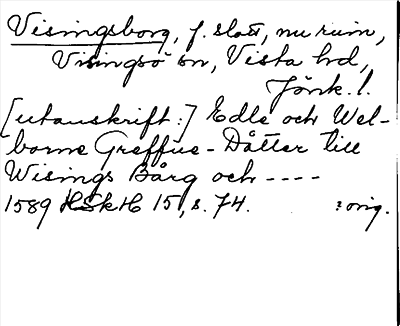 Visingsborg, f. slott, nu ruin,
Visingsö sn, Vista hd,
Jönk. l.
[utanskrift:] Edle och Wel-
borne Greffue-Dåtter till
Wisings Bårg och ----
1589 HSkH 15, s. 74. :orig.